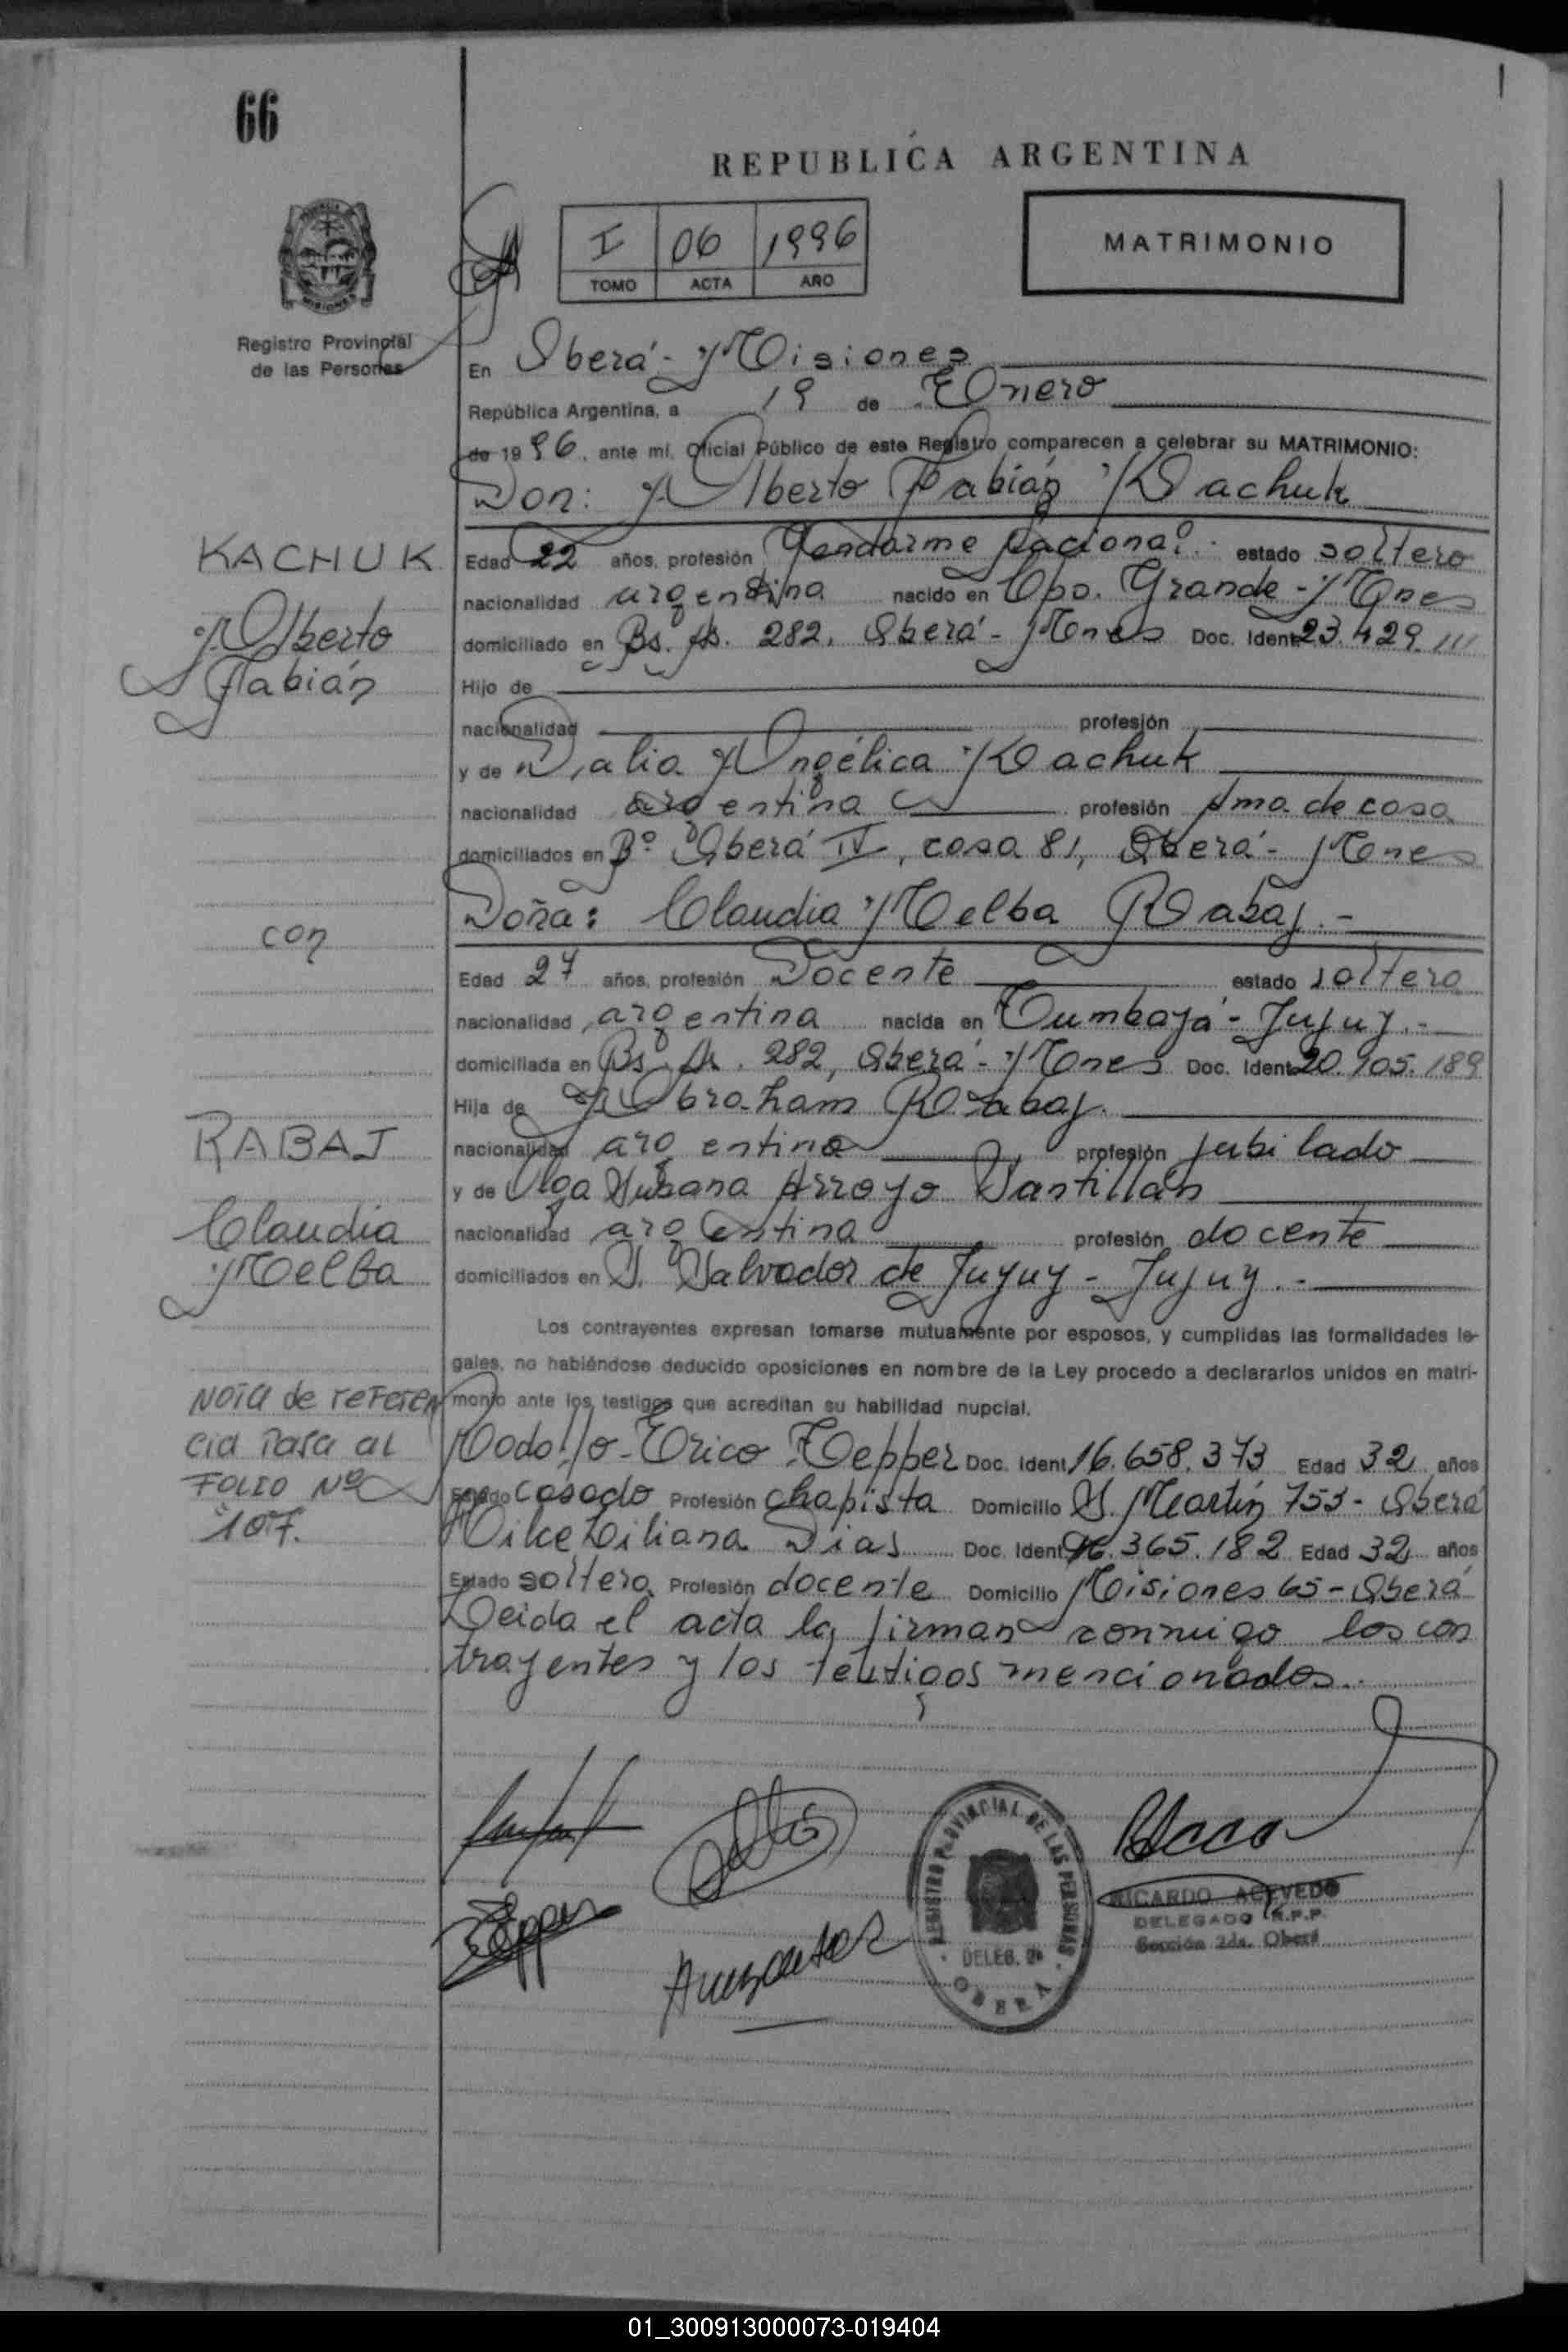 66
REPUBLICA ARGENTINA
I 06 1996
TOMO ACTA AÑO
MATRIMONIO
Registro Provincial
de las Personas
En Oberá - Misiones
República Argentina, a 19 de Enero
de 1996, ante mí, Oficial Público de este Registro comparecen a celebrar su MATRIMONIO:
Don: Alberto Fabián Kachuk
KACHUK
Alberto
Fabián
Edad 22 años, profesión Gendarme Nacional.- estado soltero
nacionalidad argentina nacido en Cpo. Grande - Mnes
domiciliado en Bs. As. 282, Oberá - Mnes Doc. Ident. 23.429.111
Hijo de
nacionalidad profesión
y de Dalia Angélica Kachuk
nacionalidad argentina profesión Ama de casa
domiciliados en Bº Oberá IV, casa 81, Oberá - Mnes
Doña: Claudia Melba Rabaj.-
con
Edad 27 años, profesión Docente estado soltera
nacionalidad argentina nacida en Tumbaya - Jujuy.-
domiciliada en Bs. As. 282, Oberá - Mnes Doc. Ident. 20.105.189
Hija de Abraham Rabaj.
RABAJ
Claudia
Melba
nacionalidad argentina profesión jubilado
y de Olga Susana Arroyo Santillán
nacionalidad argentina profesión docente
domiciliados en S. Salvador de Jujuy - Jujuy.-
Los contrayentes expresan tomarse mutuamente por esposos, y cumplidas las formalidades le-
gales, no habiéndose deducido oposiciones en nombre de la Ley procedo a declararlos unidos en matri-
monio ante los testigos que acreditan su habilidad nupcial.
NOTA de referen
cia Pasa al
FOLIO Nº
107.
Rodolfo Erico Zepper Doc. Ident. 16.658.373 Edad 32 años
Estado casado Profesión chapista Domicilio S. Martín 753 - Oberá
Silke Liliana Dias Doc. Ident. 16.365.182 Edad 32 años
Estado soltera Profesión docente Domicilio Misiones 65 - Oberá
Leida el acta la firman conmigo los con
trayentes y los testigos mencionados.
REGISTRO PROVINCIAL DE LAS PERSONAS
DELEG. 2ª
OBERA
RICARDO ACEVEDO
DELEGADO R.P.P.
Sección 2da. Oberá
01_300913000073-019404